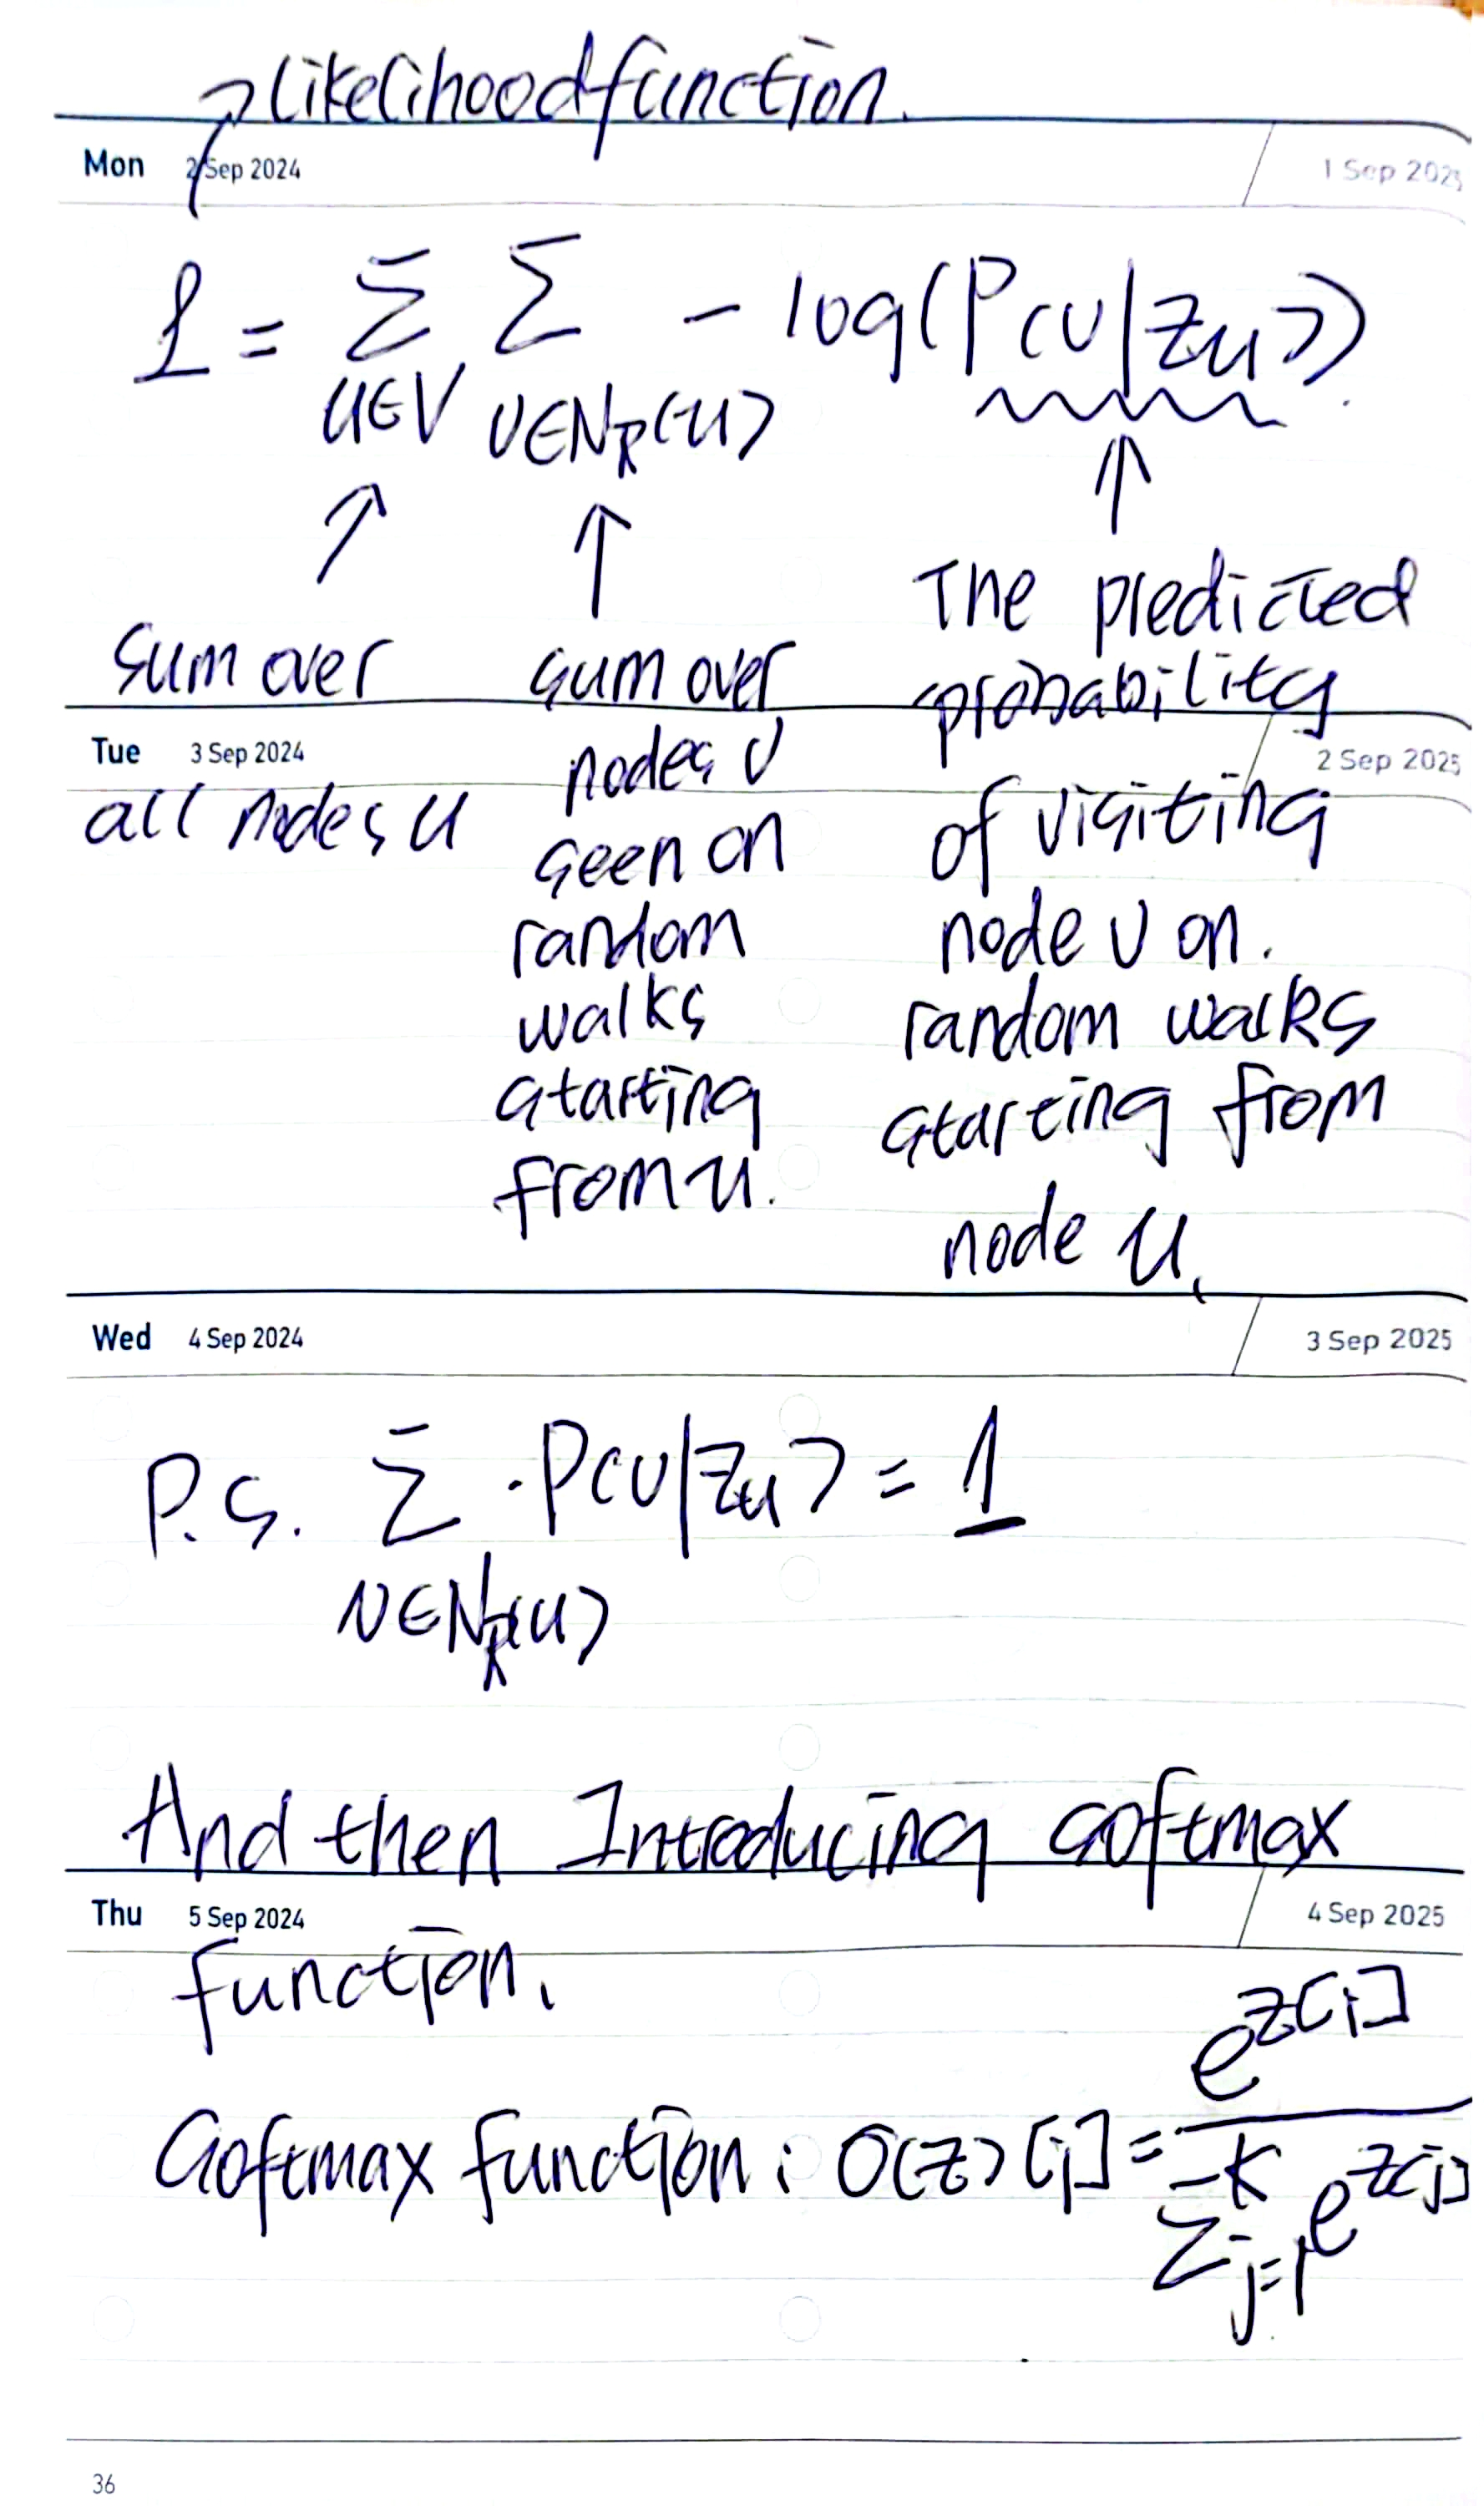 likelihood function.
Mon 2 Sep 2024 1 Sep 2025
L = Σ Σ - log(P(v|zu))
u∈V v∈N_R(u)
↗ ↑ ↑
sum over
all nodes u
sum over
nodes v
seen on
random
walks
starting
from u.
The predicted
probability
of visiting
node v on.
random walks
starting from
node u.
Tue 3 Sep 2024 2 Sep 2025
Wed 4 Sep 2024 3 Sep 2025
P.S. Σ P(v|zu) = 1
v∈N_R(u)
And then Introducing softmax
Thu 5 Sep 2024 4 Sep 2025
function.
Softmax function: σ(z)[i] = e^z[i] / Σ^K_j=1 e^z[j]
36